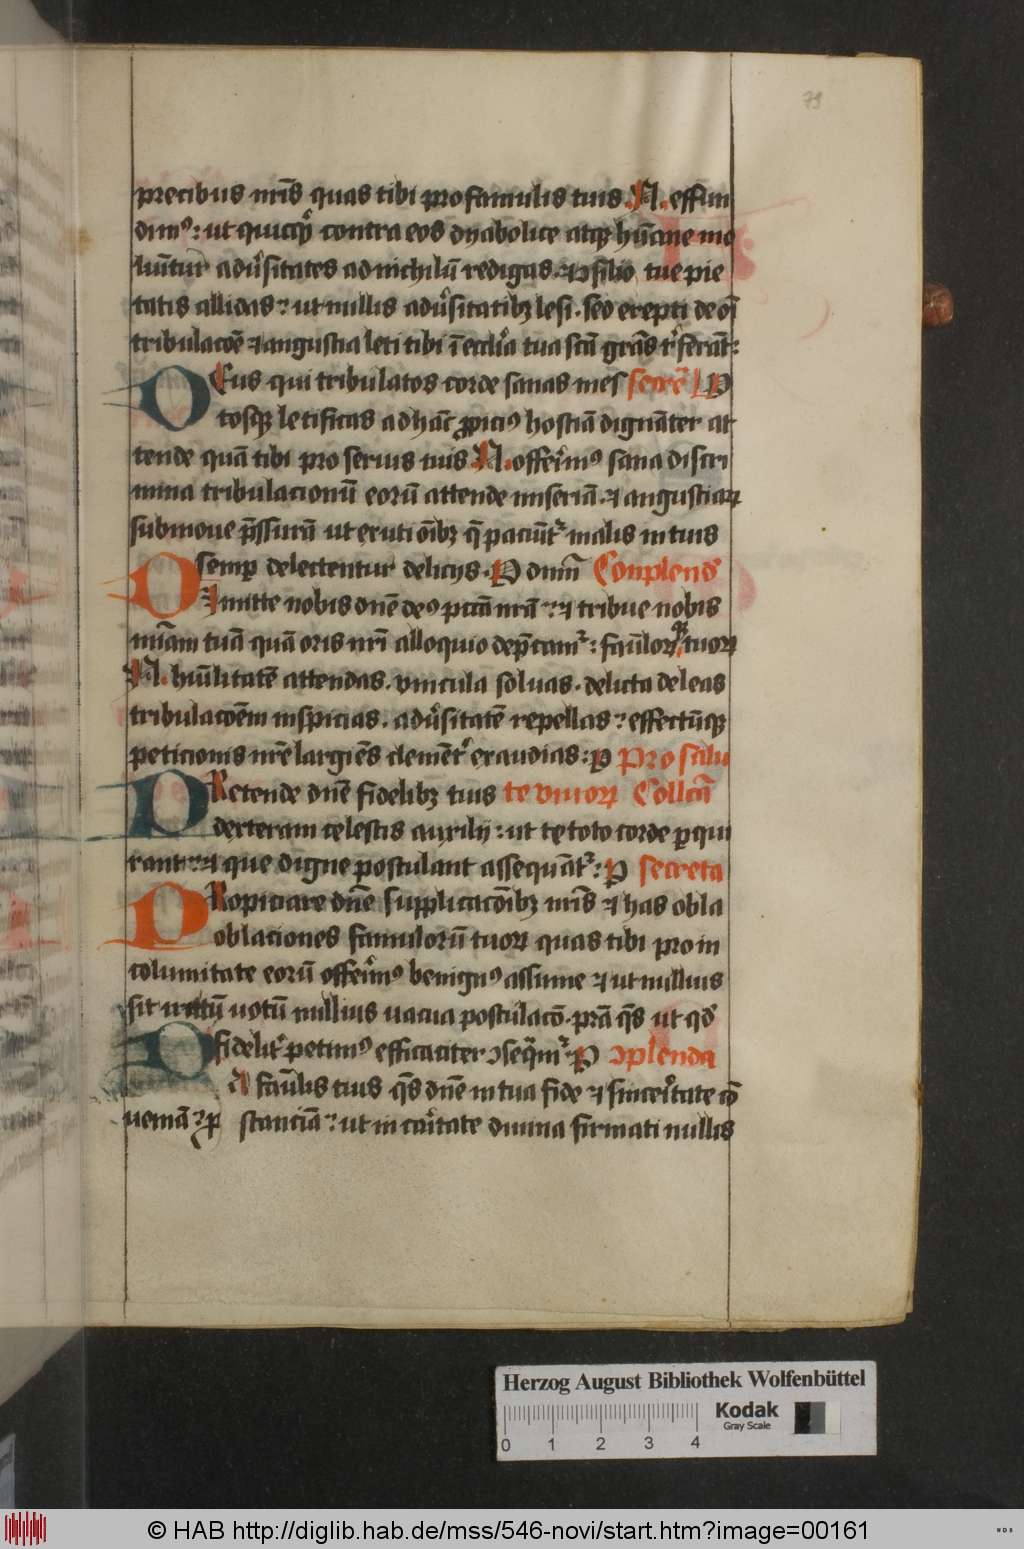 79
precibus nr̄is quas tibi pro famulis tuis .N. effun
dimꝰ: ut quicq̄ contra eos dyabolice atqꝫ hūane mo
luntur adūsitates ad nichilū redigas. ⁊ ꝯsilio tue pie
tatis allidas: ut nullis adūsitatibꝫ lesi. sed erepti de oī
tribulacōe ⁊ angustia leti tibi ī ecclīa tua scā grās r̄ferāt:
DEus qui tribulatos corde sanas mes secrē P
tosqꝫ letificas ad hāc ꝓpiciꝰ hostiā dignāter at
tende quā tibi pro seruis tuis .N. offerimꝰ sana discri
mina tribulacionū eorū attende miseriā. ⁊ angustiaꝝ
submoue p̄ssurā ut eruti oībꝫ q̄ paciūt̄ malis in tuis
semꝑ delectentur delicijs. P dnm̄ Conplend̄
DImitte nobis dn̄e deꝰ pccā nr̄a: ⁊ tribue nobis
mīam tuā quā oris nr̄i alloquio dep̄camꝰ: fāuloꝝ tuoꝝ
.N. hūilitatē attendas. vincula soluas. delicta deleas
tribulacōem inspicias. adūsitatē repellas: effectūqꝫ
peticionis nr̄e largiēs clemēt̄ exaudias: P Pro salu
PRetende dn̄e fidelibꝫ tuis te viuoꝝ Collcā
dexteram celestis auxilij: ut te toto corde ꝑqui
rant: ⁊ que digne postulant assequāt̄: P secreta
PRopiciare dn̄e supplicacōibꝫ nr̄is ⁊ has obla
oblaciones famulorū tuoꝝ quas tibi pro in
columitate eorū offerimꝰ benignꝰ assume ⁊ ut nullius
sit irritū uotū nullius uacua postulacō. p̄ta q̄s ut qd̄
fidelit̄ petimꝰ efficaciter ꝯseq̄mꝰ. P ꝯplenda
DA fāulis tuis q̄s dn̄e in tua fide ⁊ sinceritate cō
stanciā: ut in caritate diuina firmati nullis
Herzog August Bibliothek Wolfenbüttel
0 1 2 3 4
Kodak
Gray Scale
© HAB http://diglib.hab.de/mss/546-novi/start.htm?image=00161